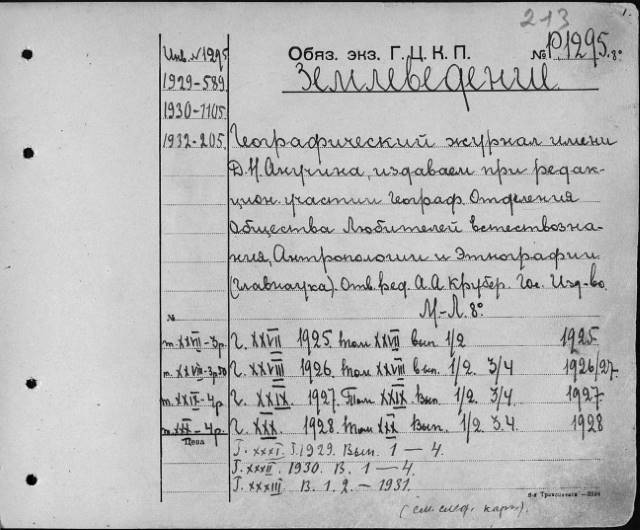 213
1.
Инв. №1295
1929-589.
1930-1105.
1932-205.
Обяз. экз. Г.Ц.К.П. № Р1295. 8°
Землеведение.
Географический журнал имени
Д.Н. Анучина, издаваем при редак-
цион. участии Географ. Отделения
Общества Любителей естествозна-
ния, Антропологии и Этнографии
(Главнаука). Отв. ред. А.А. Крубер. Гос. Изд-во.
М.-Л. 8°
№
т. XXVII-3р. Г. XXVII 1925. том XXVII вып. 1/2 1925
т. XXVIII-3р.50 Г. XXVIII 1926. том XXVIII вып. 1/2. 3/4 1926/27.
т. XXIX-4р Г. XXIX. 1927. Том XXIX Вып. 1/2. 3/4 1927
т. XXX-4р. Г. XXX. 1928. том XXX Вып. 1/2. 3.4. 1928
Цена
Т. XXXI. Г. 1929. Вып. 1 — 4.
Т. XXXII. 1930. В. 1 — 4.
Т. XXXIII. В. 1. 2. – 1931.
(см. след. карт.).